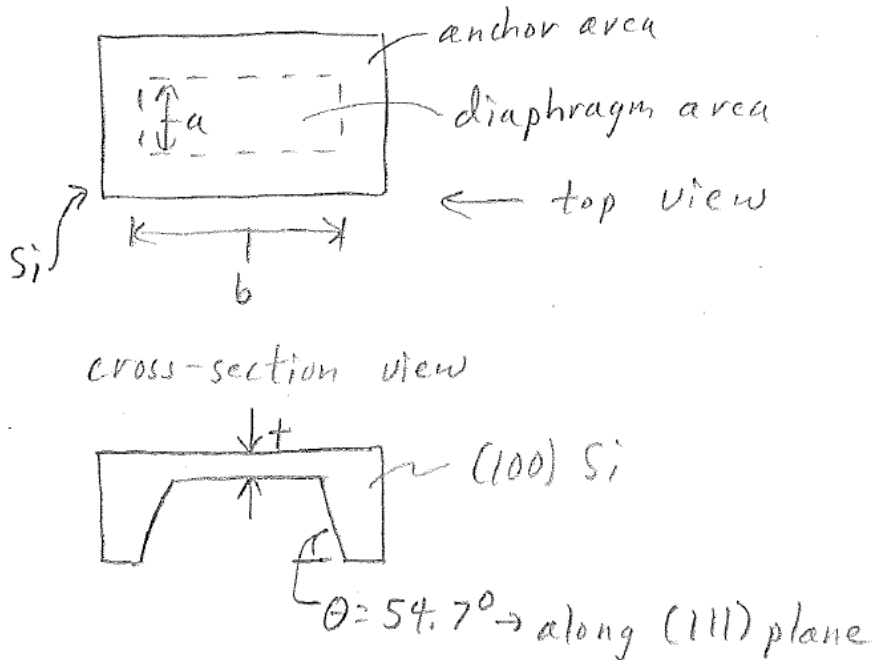 anchor area
a
diaphragm area
top view
Si
b
cross-section view
t
(100) Si
θ = 54.7° → along (111) plane